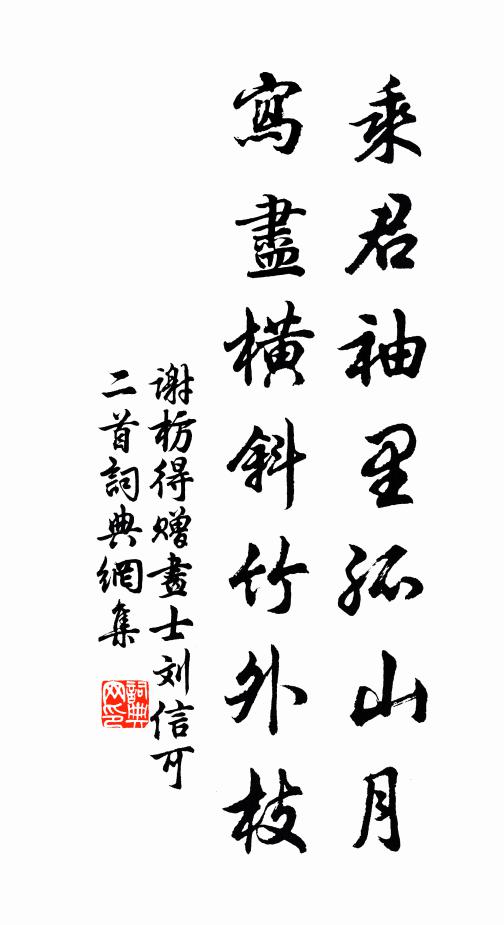 乘君袖里孤山月
寫盡橫斜竹外枝
谢枋得赠畫士刘信可
二首詞典網集
詞典
网印